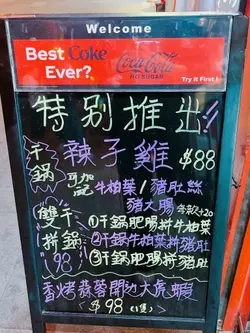 Welcome
Best Coke
Ever?
Coca-Cola
NO SUGAR
Try it First!
特别推出!!
干鍋 辣子雞 $88
可加配 牛柏葉/豬肚絲
豬大腸 各款+20
雙拼干鍋 98
①干鍋肥腸拼牛柏葉
②干鍋牛柏葉拼豬肚
③干鍋肥腸拼豬肚
香烤蒜蓉開边大虎蝦
$98